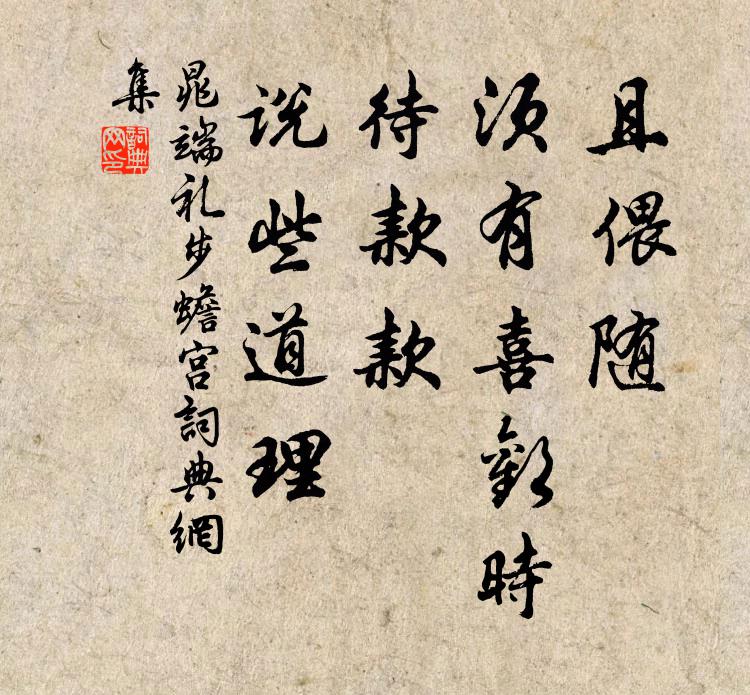 且偎随
须有喜歡時
待款款
说些道理
晁端礼步蟾宫詞典網
集
詞典
网印